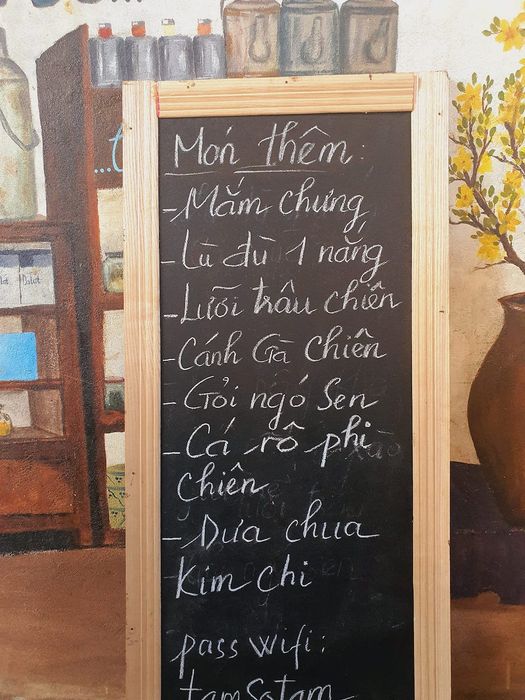 Món thêm:
- Mắm chưng
- Lù đù 1 nắng
- Lưỡi trâu chiên
- Cánh Gà chiên
- Gỏi ngó Sen
- Cá rô phi
chiên
- Dưa chua
Kim chi
pass wifi: